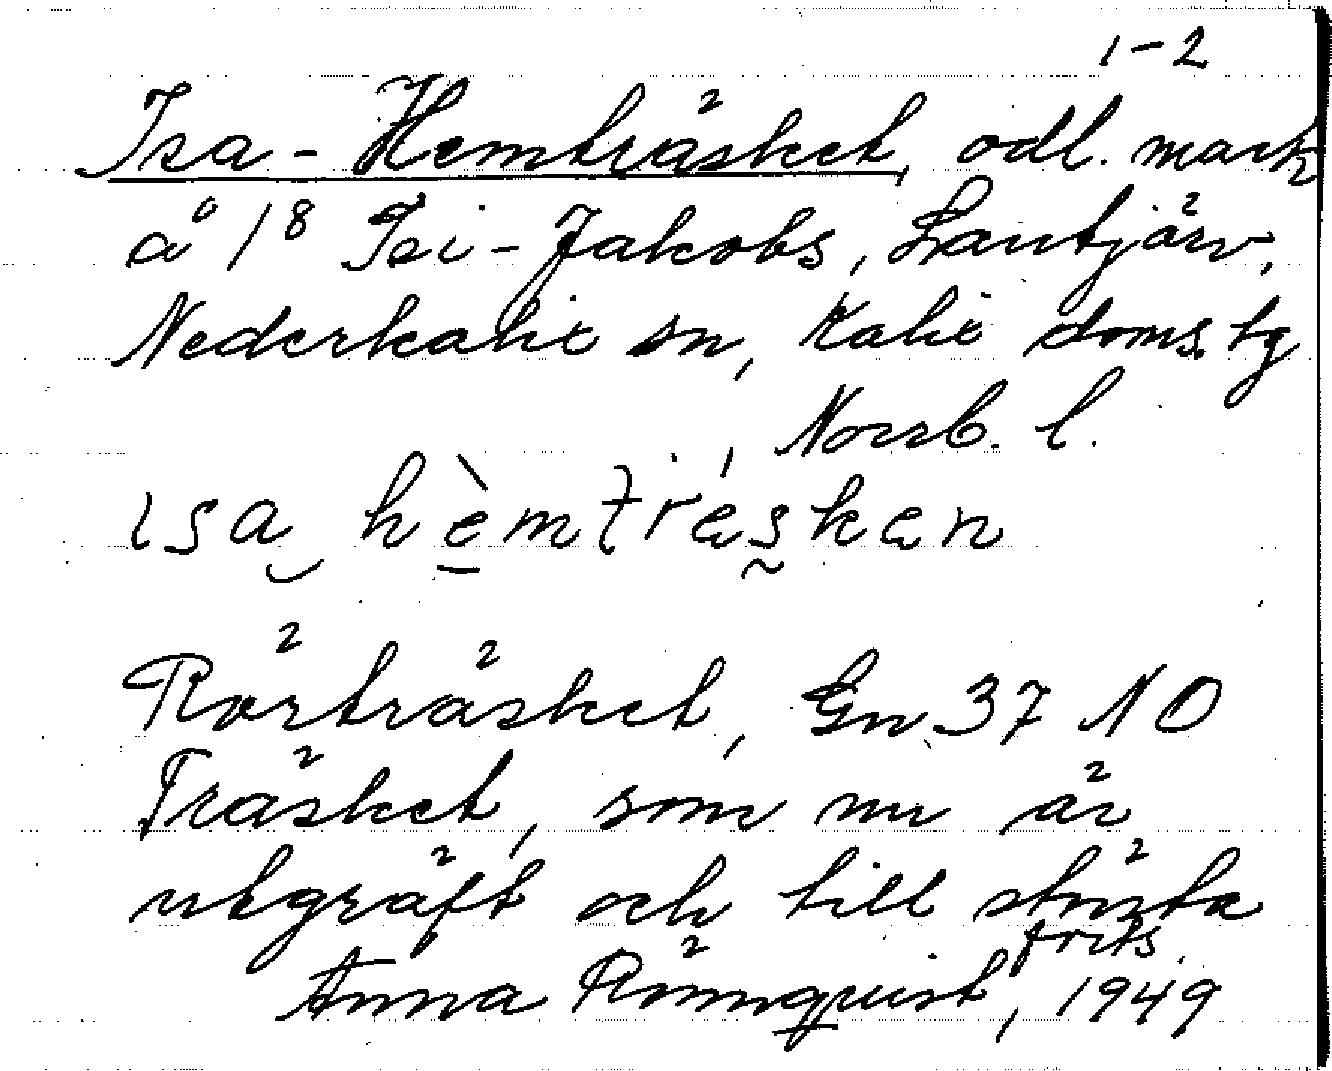 1-2
Isa-Hemträsket, odl. mark
å 1⁸ Isi-Jakobs, Lantjärv,
Nederkalix sn, Kalix doms. tg
, Norrb. l.
ısa hèmtrɛskɛn
Rörträsket, Gn 37 NO
Träsket, som nu är
utgräft och till största
Anna Rönnquist, forts. 1949